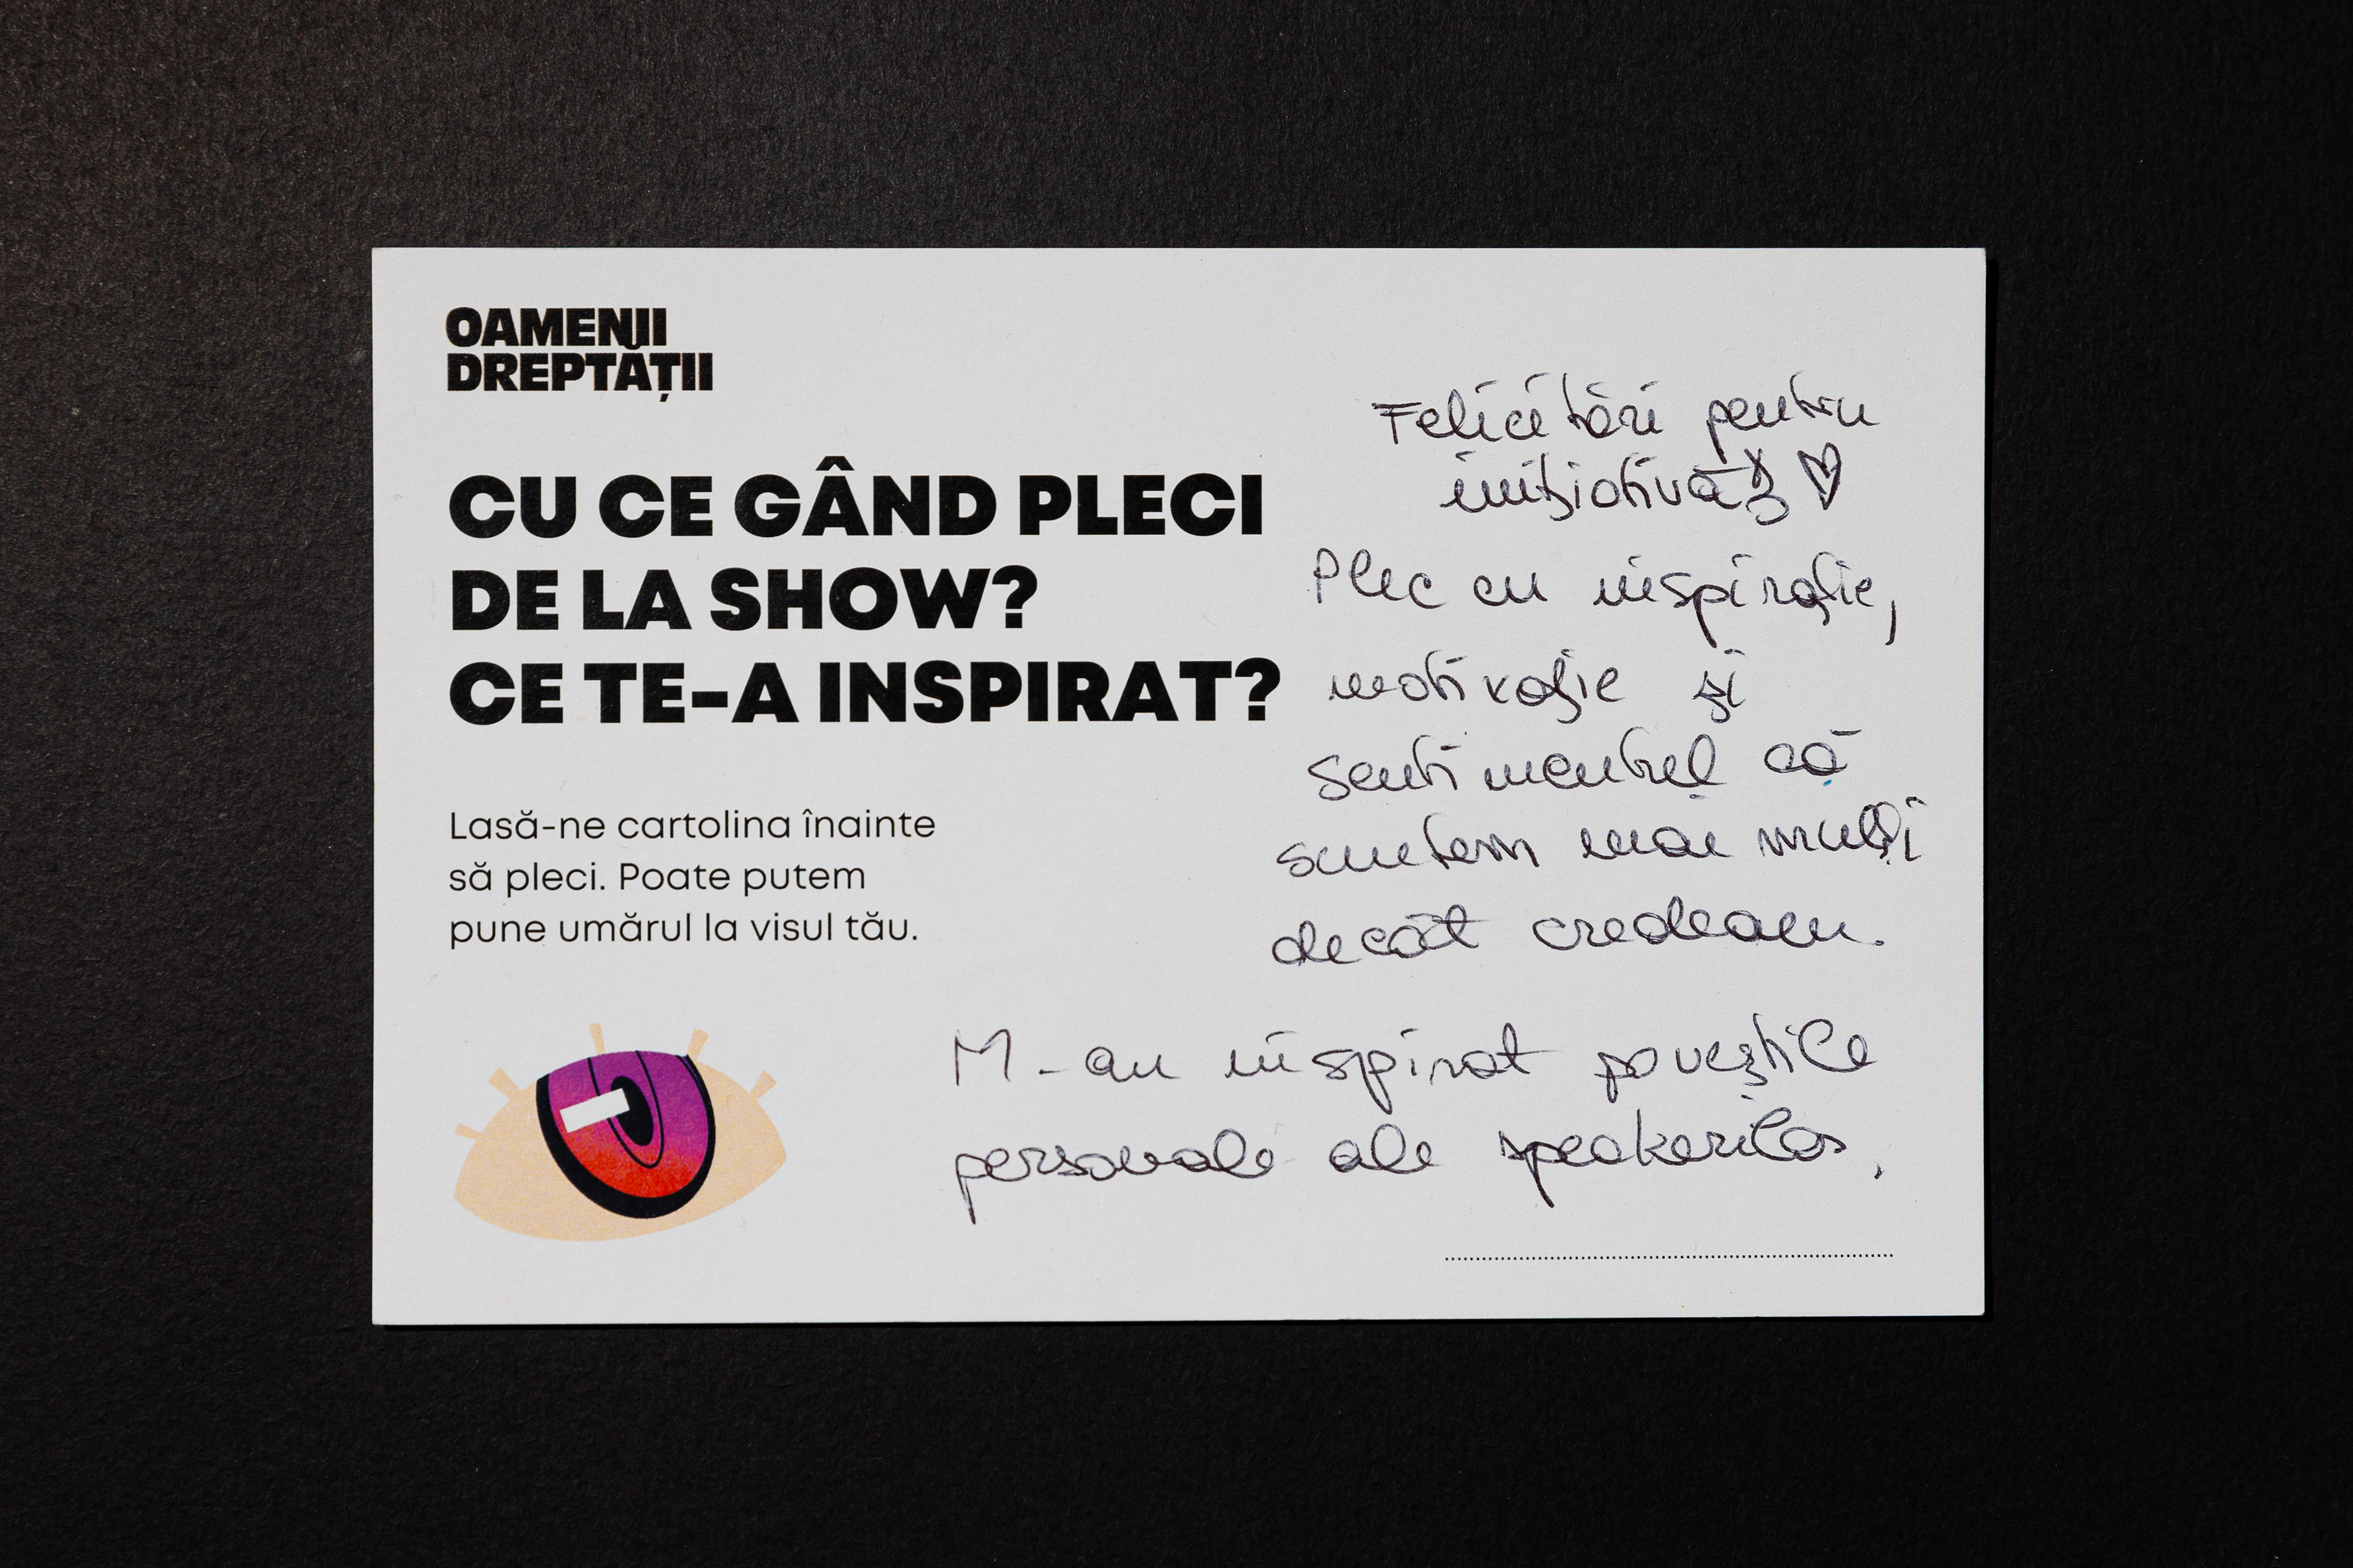 OAMENII
DREPTĂȚII
CU CE GÂND PLECI
DE LA SHOW?
CE TE-A INSPIRAT?
Lasă-ne cartolina înainte
să pleci. Poate putem
pune umărul la visul tău.
Felicitări pentru
inițiativă! ♡
Plec cu inspirație,
motivație și
sentimentul că
suntem mai mulți
decât credeam.
M-au inspirat poveștile
personale ale speakerilor.